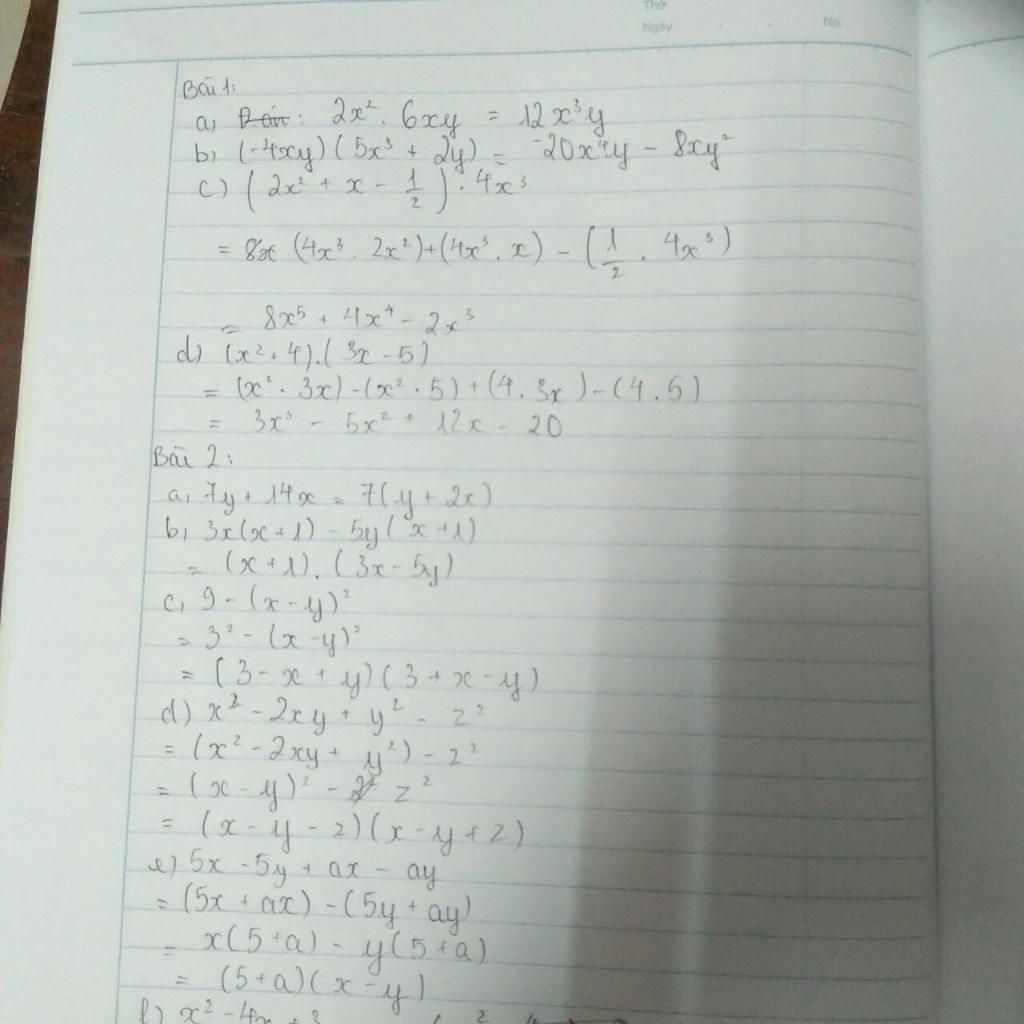 Thứ
Ngày . . No.
Bài 1:
a, : 2x² . 6xy = 12x³y
b, (-4xy)(5x³ + 2y) = -20x⁴y - 8xy²
c) (2x² + x - 1/2) . 4x³
= (4x³ . 2x²)+(4x³ . x) - (1/2 . 4x³)
= 8x⁵ + 4x⁴ - 2x³
d) (x² + 4).(3x - 5)
= (x² . 3x) - (x² . 5) + (4 . 3x) - (4 . 5)
= 3x³ - 5x² + 12x - 20
Bài 2:
a, 7y + 14x = 7(y + 2x)
b, 3x(x + 1) - 5y(x + 1)
= (x + 1) . (3x - 5y)
c, 9 - (x - y)²
= 3² - (x - y)²
= (3 - x + y)(3 + x - y)
d) x² - 2xy + y² - z²
= (x² - 2xy + y²) - z²
= (x - y)² - z²
= (x - y - z)(x - y + z)
e) 5x - 5y + ax - ay
= (5x + ax) - (5y + ay)
= x(5 + a) - y(5 + a)
= (5 + a)(x - y)
f) x² - 4x + 3